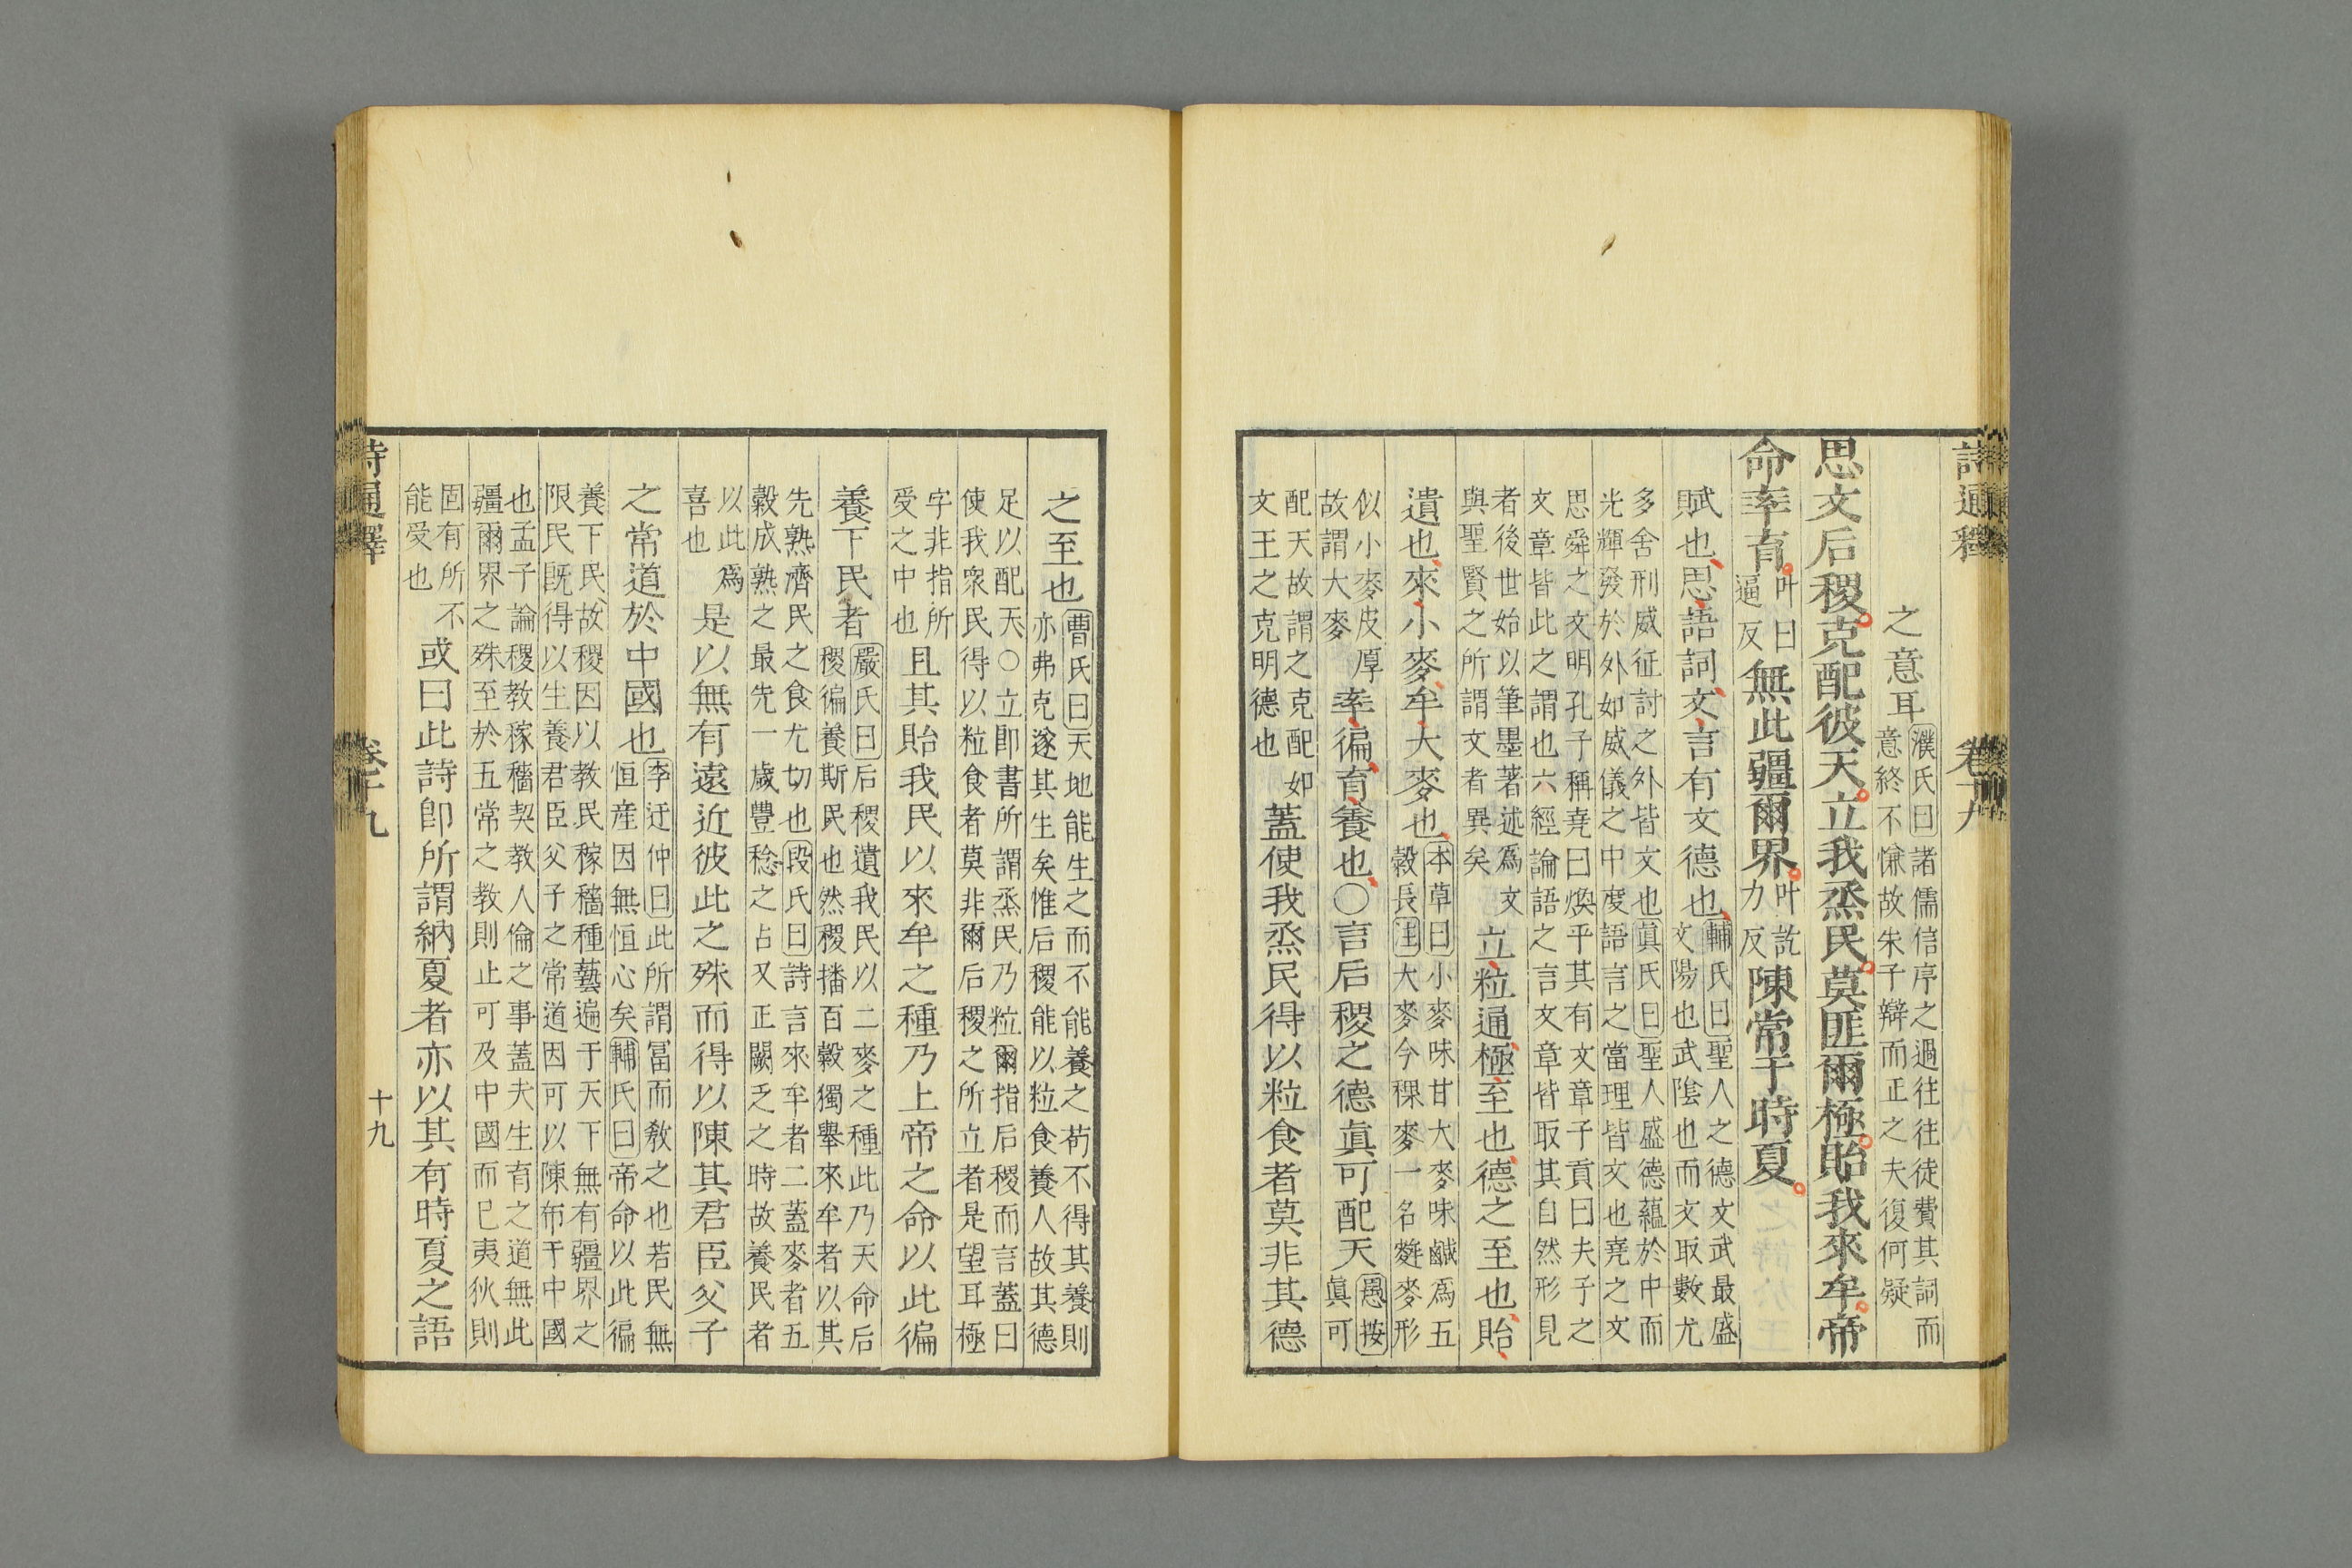 詩通釋
卷十九
之意耳
濮氏曰諸儒信序之過往往徒費其詞而
意終不慊故朱子辯而正之夫復何疑
思文后稷克配彼天立我烝民莫匪爾極貽我來牟帝
命率育
叶曰
逼反
無此疆爾界
叶訖
力反
陳常于時夏
賦也思語詞文言有文德也
輔氏曰聖人之德文武最盛
文陽也武隂也而文取數尤
多舍刑威征討之外皆文也真氏曰聖人盛德蘊於中而
光輝發於外如威儀之中度語言之當理皆文也堯之文
思舜之文明孔子稱堯曰煥乎其有文章子貢曰夫子之
文章皆此之謂也六經論語之言文章皆取其自然形見
者後世始以筆墨著述爲文
與聖賢之所謂文者異矣
立粒通極至也德之至也貽
遺也來小麥牟大麥也
本草曰小麥味甘大麥味鹹爲五
糓長注大麥今稞麥一名麰麥形
似小麥皮厚
故謂大麥
率徧育養也〇言后稷之德眞可配天
愚按
眞可
配天故謂之克配如
文王之克明德也
蓋使我烝民得以粒食者莫非其德
之至也
曹氏曰天地能生之而不能養之苟不得其養則
亦弗克遂其生矣惟后稷能以粒食養人故其德
足以配天〇立即書所謂烝民乃粒爾指后稷而言蓋曰
使我衆民得以粒食者莫非爾后稷之所立者是望耳極
字非指所
受之中也
且其貽我民以來牟之種乃上帝之命以此徧
養下民者
嚴氏曰后稷遺我民以二麥之種此乃天命后
稷徧養斯民也然稷播百穀獨舉來牟者以其
先熟濟民之食尤切也段氏曰詩言來牟者二蓋麥者五
穀成熟之最先一歲豐稔之占又正闕乏之時故養民者
以此爲
喜也
是以無有遠近彼此之殊而得以陳其君臣父子
之常道於中國也
李迂仲曰此所謂冨而敎之也若民無
恒産因無恒心矣輔氏曰帝命以此徧
養下民故稷因以教民稼穡種藝遍于天下無有疆界之
限民既得以生養君臣父子之常道因可以陳布于中國
也孟子論稷教稼穡契教人倫之事蓋夫生有之道無此
疆爾界之殊至於五常之教則止可及中國而已夷狄則
固有所不
能受也
或曰此詩即所謂納夏者亦以其有時夏之語
詩通釋
卷十九
十九